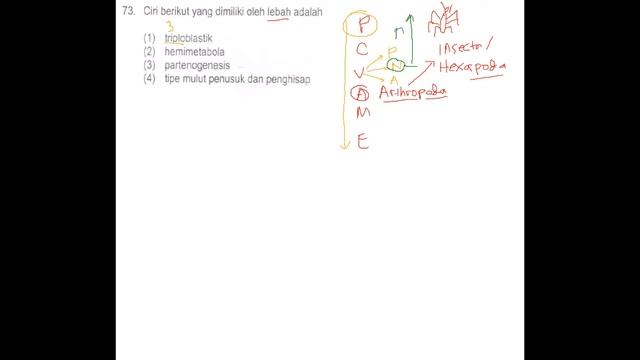 73. Ciri berikut yang dimiliki oleh lebah adalah
3
(1) triploblastik
(2) hemimetabola
(3) partenogenesis
(4) tipe mulut penusuk dan penghisap
P
C
V
A
M
E
P
N
A
n
Insecta/
Hexapoda
Arthropoda